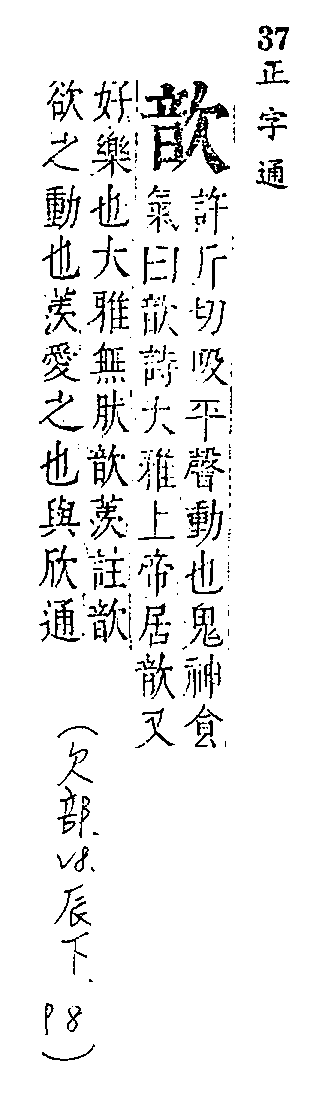 37
正字通
歆
許斤切吸平聲動也鬼神食
氣曰歆詩大雅上帝居歆又
好樂也大雅無肰歆羨註歆
欲之動也羨愛之也與欣通
(欠部.V8.辰下.P8)